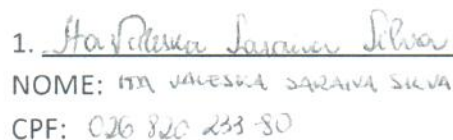 1. Ita Valeska Saraiva Silva
NOME: ITA VALESKA SARAIVA SILVA
CPF: 026 820 233-80